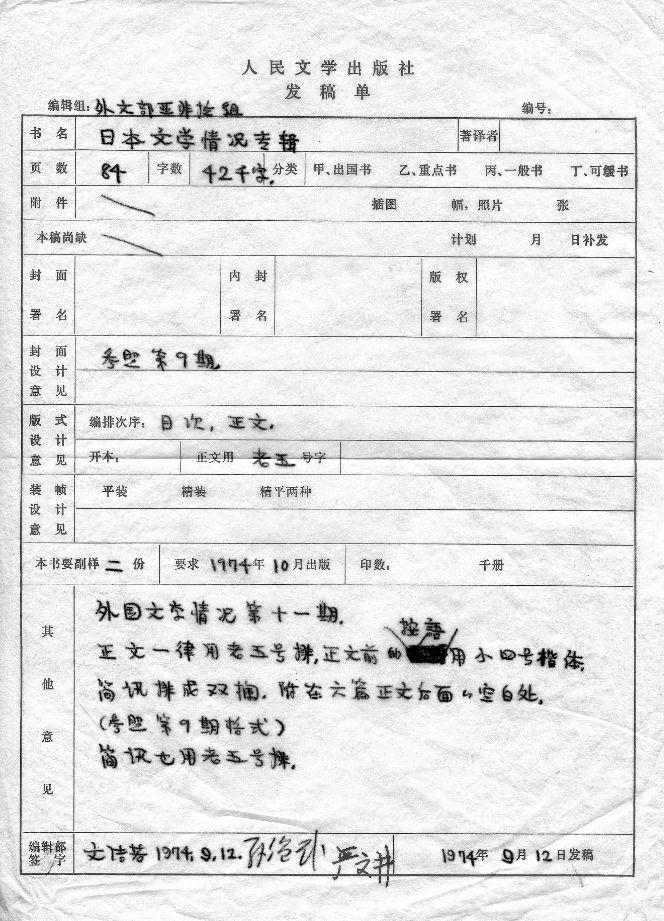 人民文学出版社
发稿单
编辑组：外文部亚非拉组 编号：
书名 日本文学情况专辑 著译者
页数 84 字数 42千字. 分类 甲、出国书 乙、重点书 丙、一般书 丁、可缓书
附件 插图 幅，照片 张
本稿尚缺 计划 月 日补发
封面 内封 版权
署名 署名 署名
封面设计意见 参照第9期.
版式设计意见 编排次序：目次，正文.
开本： 正文用 老五 号字
装帧设计意见 平装 精装 精平两种
本书要副样二份 要求 1974年10月出版 印数： 千册
其他意见
外国文学情况第十一期.
按語
正文一律用老五号排,正文前的用小四号楷体;
简讯排成双栏.附在六篇正文后面的空白处.
(参照第9期格式)
简讯也用老五号排.
编辑部签字 文洁若 1974.9.12. 孙绳武 严文井 1974年9月12日发稿